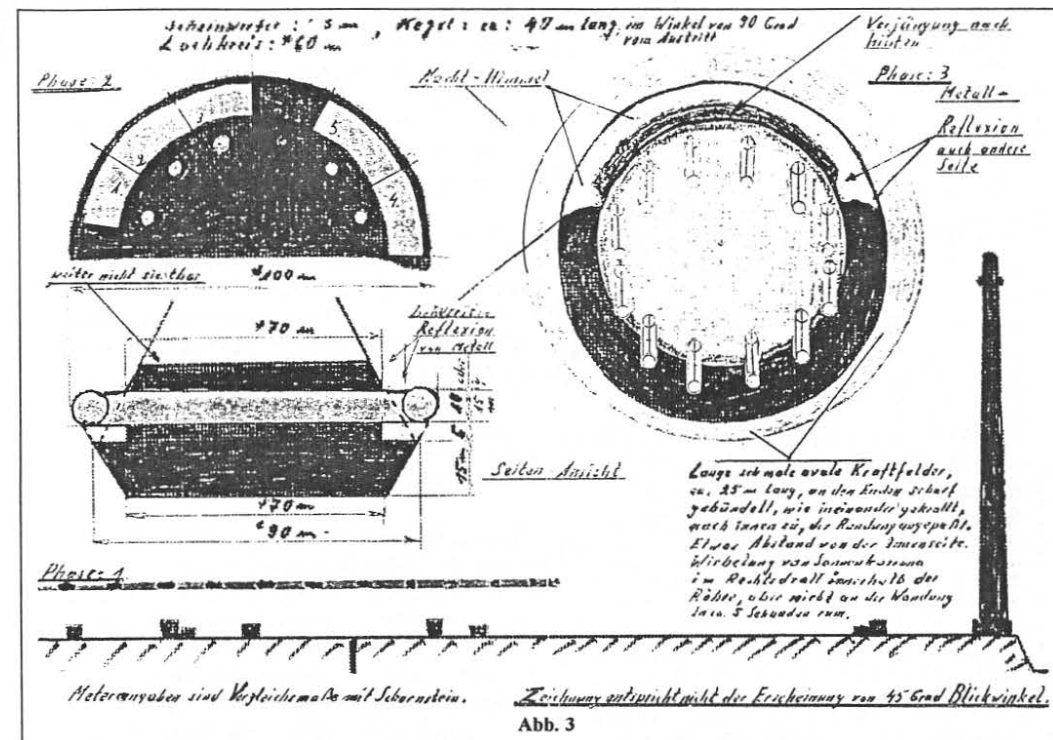 Scheinwerfer: * 5 m, Kegel: ca: 40 m lang, im Winkel von 90 Grad
vom Austritt
Lochkreis: *60 m
Phase: 2
1
2
3
5
4
weiter nicht sichtbar
*100 m
Nacht-Himmel
Verjüngung nach
hinten
Phase: 3
Metall-
Reflexion
auch andere
Seite
*70 m
Reflexion
von Metall
10
15
m
15 m
Seiten-Ansicht
*70 m
*90 m
Lange schmale ovale Kraftfelder,
ca. 25 m lang, an den Enden scharf
gebündelt, wie ineinander gekrallt,
nach innen zu, der Rundung angepaßt.
Etwas Abstand von der Innenseite.
Wirbelung von Sonnenkorona
im Rechtsdrall innerhalb der
Röhre, aber nicht an der Wandung
in ca. 5 Sekunden rum.
Phase: 1
Meterangaben sind Vergleichsmaße mit Schornstein.
Zeichnung entspricht nicht der Erscheinung von 45 Grad Blickwinkel.
Abb. 3